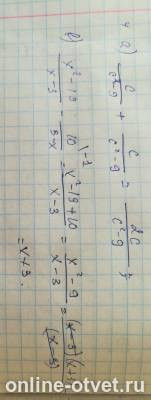 4 a) c/(c²-9) + c/(c²-9) = 2c/(c²-9);
(x²-19)/(x-3) - 10/(3-x) \-1 = (x²-19+10)/(x-3) = (x²-9)/(x-3) = (x-3)(x+3)/(x-3)
= x+3.
online-otvet.ru